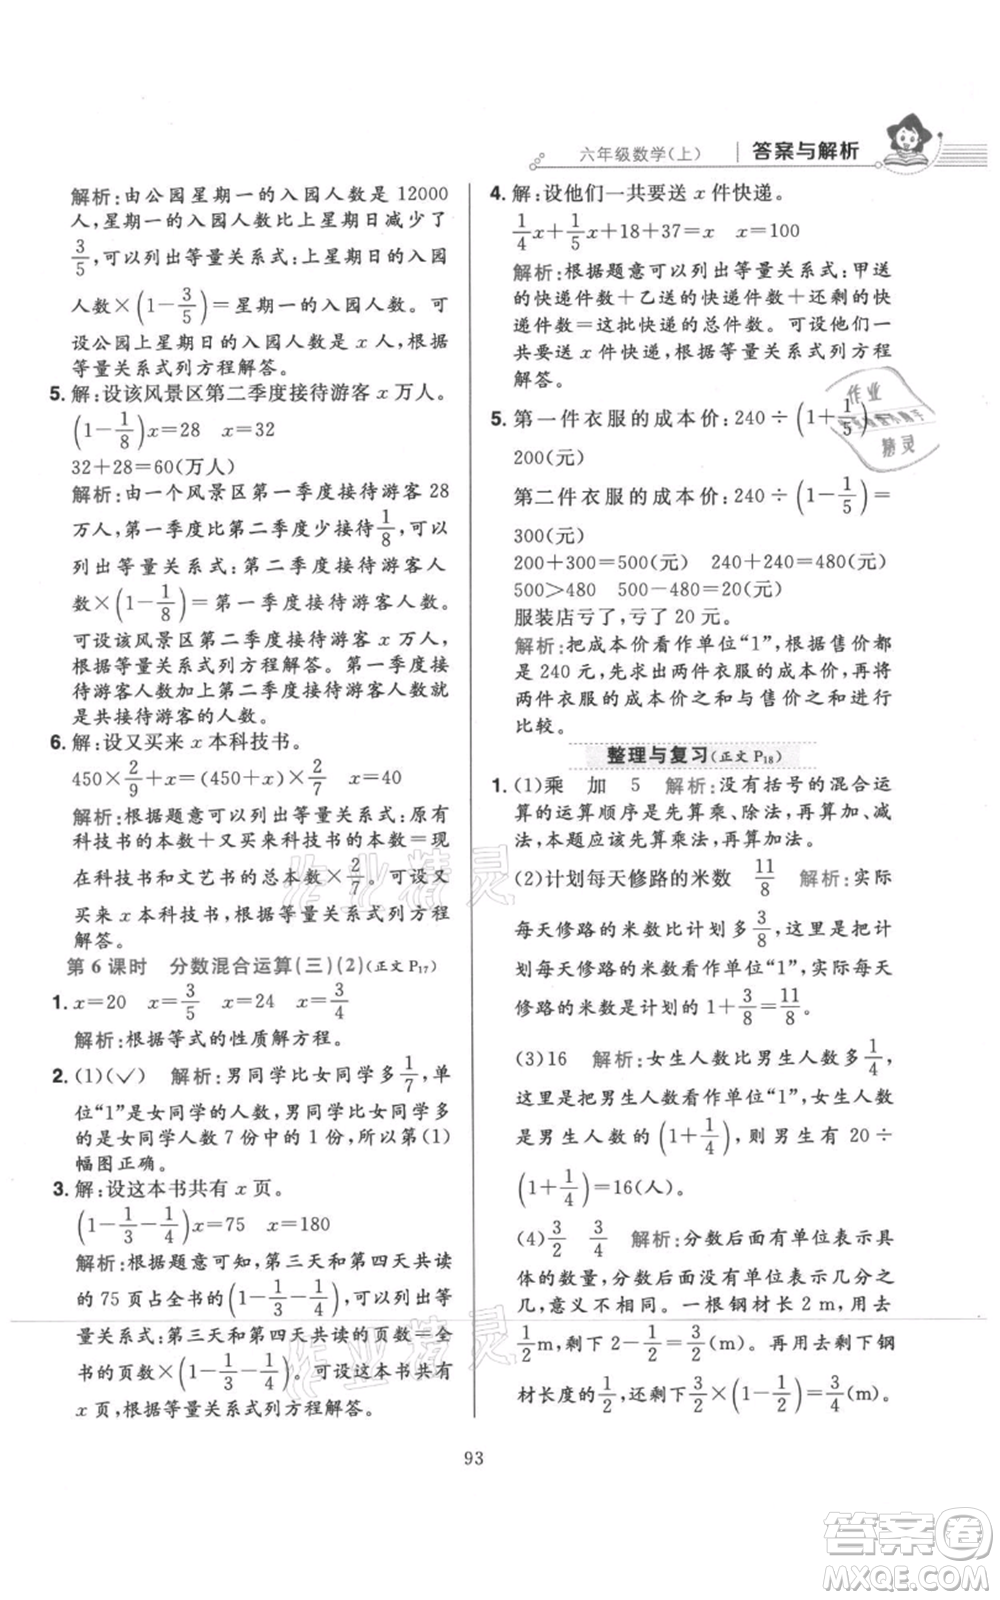 六年级数学(上) 答案与解析
解析:由公园星期一的入园人数是 12000
人,星期一的入园人数比上星期日减少了
3/5,可以列出等量关系式:上星期日的入园
人数×(1−3/5)=星期一的入园人数。可
设公园上星期日的入园人数是 x 人,根据
等量关系式列方程解答。
5. 解:设该风景区第二季度接待游客 x 万人。
(1−1/8)x=28 x=32
32+28=60(万人)
解析:由一个风景区第一季度接待游客 28
万人,第一季度比第二季度少接待1/8,可以
列出等量关系式:第二季度接待游客人
数×(1−1/8)=第一季度接待游客人数。
可设该风景区第二季度接待游客 x 万人,
根据等量关系式列方程解答。第一季度接
待游客人数加上第二季度接待游客人数就
是共接待游客的人数。
6. 解:设又买来 x 本科技书。
450×2/9+x=(450+x)×2/7 x=40
解析:根据题意可以列出等量关系式:原有
科技书的本数+又买来科技书的本数=现
在科技书和文艺书的总本数×2/7。可设又
买来 x 本科技书,根据等量关系式列方程
解答。
第 6 课时 分数混合运算(三)(2)(正文 P17)
1. x=20 x=3/5 x=24 x=3/4
解析:根据等式的性质解方程。
2. (1)(✓) 解析:男同学比女同学多1/7,单
位“1”是女同学的人数,男同学比女同学多
的是女同学人数 7 份中的 1 份,所以第(1)
幅图正确。
3. 解:设这本书共有 x 页。
(1−1/3−1/4)x=75 x=180
解析:根据题意可知,第三天和第四天共读
的 75 页占全书的(1−1/3−1/4),可以列出等
量关系式:第三天和第四天共读的页数=全
书的页数×(1−1/3−1/4)。可设这本书共有
x 页,根据等量关系式列方程解答。
4. 解:设他们一共要送 x 件快递。
1/4x+1/5x+18+37=x x=100
解析:根据题意可以列出等量关系式:甲送
的快递件数+乙送的快递件数+还剩的快
递件数=这批快递的总件数。可设他们一
共要送 x 件快递,根据等量关系式列方程
解答。
5. 第一件衣服的成本价:240÷(1+1/5)
200(元)
第二件衣服的成本价:240÷(1−1/5)=
300(元)
200+300=500(元) 240+240=480(元)
500>480 500−480=20(元)
服装店亏了,亏了 20 元。
解析:把成本价看作单位“1”,根据售价都
是 240 元,先求出两件衣服的成本价,再将
两件衣服的成本价之和与售价之和进行
比较。
整理与复习(正文 P18)
1. (1)乘 加 5 解析:没有括号的混合运
算的运算顺序是先算乘、除法,再算加、减
法,本题应该先算乘法,再算加法。
(2)计划每天修路的米数 11/8 解析:实际
每天修路的米数比计划多3/8,这里把计划
每天修路的米数看作单位“1”,实际每天
修路的米数是计划的 1+3/8=11/8。
(3)16 解析:女生人数比男生人数多1/4,
这里是把男生人数看作单位“1”,女生人
数是男生人数的(1+1/4),则男生有 20÷
(1+1/4)=16(人)。
(4)3/2 3/4 解析:分数后面有单位表示具
体的数量,分数后面没有单位表示几分之
几,意义不相同。一根钢材长 2 m,用去
1/2m,剩下 2−1/2=3/2(m)。再用去剩下钢
材长度的1/2,还剩下3/2×(1−1/2)=3/4(m)。
93
作业
精灵
作业精灵
作业精灵
答案圈
MXQE.COM